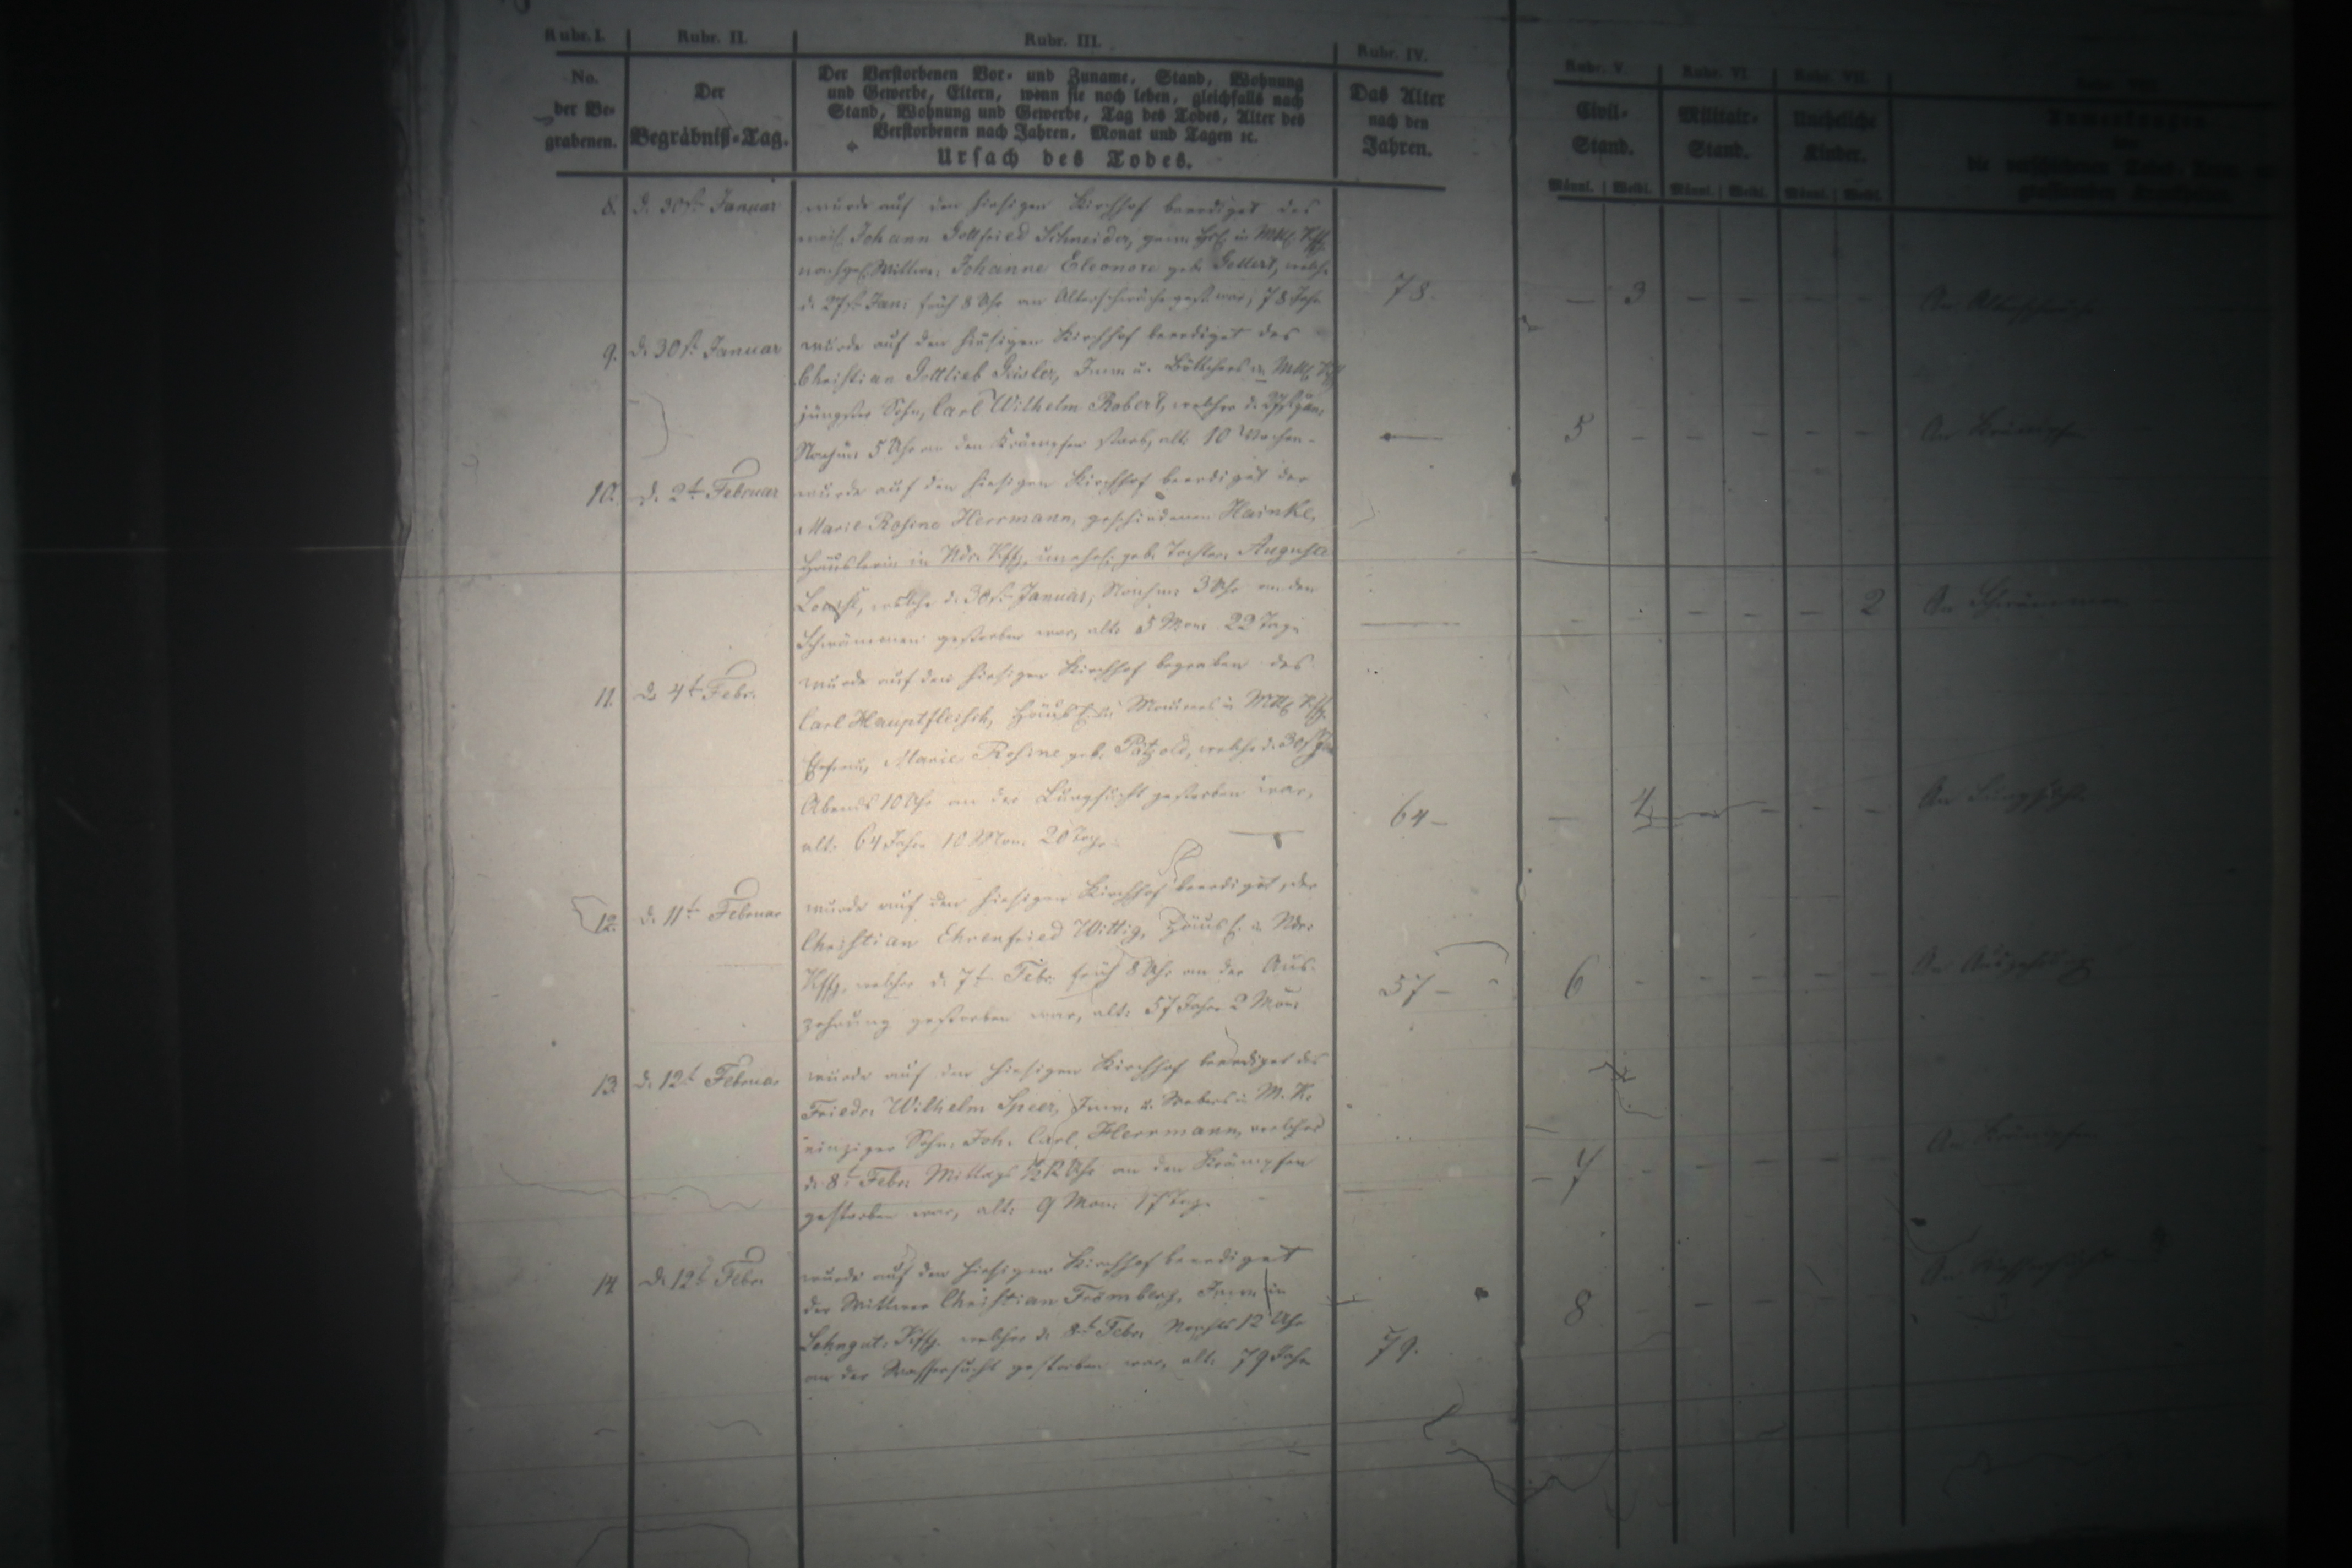 Rubr. I.
No.
der Be-
grabenen.
Rubr. II.
Der
Begräbniß-Tag.
Rubr. III.
Der Verstorbenen Vor- und Zuname, Stand, Wohnung
und Gewerbe, Eltern, wenn sie noch leben, gleichfalls nach
Stand, Wohnung und Gewerbe, Tag des Todes, Alter des
Verstorbenen nach Jahren, Monat und Tagen ꝛc.
Ursach des Todes.
Rubr. IV.
Das Alter
nach den
Jahren.
Rubr. V.
Civil-
Stand.
Männl. Weibl.
Rubr. VI.
Militair-
Stand.
Männl. Weibl.
Rubr. VII.
Uneheliche
Kinder.
Männl. Weibl.
8. d. 30st Januar
wurde auf den hiesigen Kirchhof beerdiget des
Johann Gottfried Schneider, in Mttl Kffg
Wittwe, Johanne Eleonore geb. welche
d. 27st Jan: früh 8 Uhr an Altersschwäche gest. war, 78 Jahr
78.
— 3 — — — —
An Altersschwäche
9. d. 30st Januar
wurde auf den hiesigen Kirchhof beerdiget des
Christian Gottlieb Geisler, Inw. u. Böttchers in Mttl Kffg
jüngster Sohn, Carl Wilhelm Robert, welcher d. 27st Jan.
Nachm: 5 Uhr an den Krämpfen starb, alt 10 Wochen
—
5 — — — — —
An Krämpfen
10. d. 2t Februar
wurde auf den hiesigen Kirchhof beerdiget der
Marie Rosine Herrmann, geschiedenen Hainke,
Häuslerin in Ndr. Kffg, unehel. geb. Tochter, Auguste
welche d. 30st Januar, Nachm: 3 Uhr an den
Schwämmen gestorben war, alt: 5 Mon: 22 Tage
—
— — — — — 2
An Schwämmen
11. d. 4t Febr.
wurde auf den hiesigen Kirchhof begraben des
Carl Hauptfleisch, Häusl. u. Maurers in Mttl Kffg
Ehefrau, Marie Rosine geb. Pätzold, welche d. 30st Jan
Abends 10 Uhr an der Lungsucht gestorben war,
alt: 64 Jahre 10 Mon. 20 Tage
64 —
— 4 — — — —
An Lungsucht
12. d. 11t Februar
wurde auf den hiesigen Kirchhof beerdiget, der
Christian Ehrenfried Wittig, Häusl. in Ndr:
Kffg, welcher d. 7t Febr. früh 8 Uhr an der Aus-
zehrung gestorben war, alt: 57 Jahre 2 Mon:
57 —
6 — — — — —
An Auszehrung
13. d. 12t Februar
wurde auf den hiesigen Kirchhof beerdiget des
Friedr. Wilhelm Speer, Inw. u. Webers in M. K.
einziger Sohn, Joh. Carl Herrmann, welcher
d. 8t Febr. Mittags ½12 Uhr an den Krämpfen
gestorben war, alt: 9 Mon: 17 Tage
—
7 — — — — —
An Krämpfen
14. d. 12t Febr.
wurde auf den hiesigen Kirchhof beerdiget
der Wittwer Christian Frömberg, Inw. in
Lehngut-Kffg. welcher d. 8t Febr. Nachts 12 Uhr
an der Wassersucht gestorben war, alt: 79 Jahr
79.
8 — — — — —
An Wassersucht